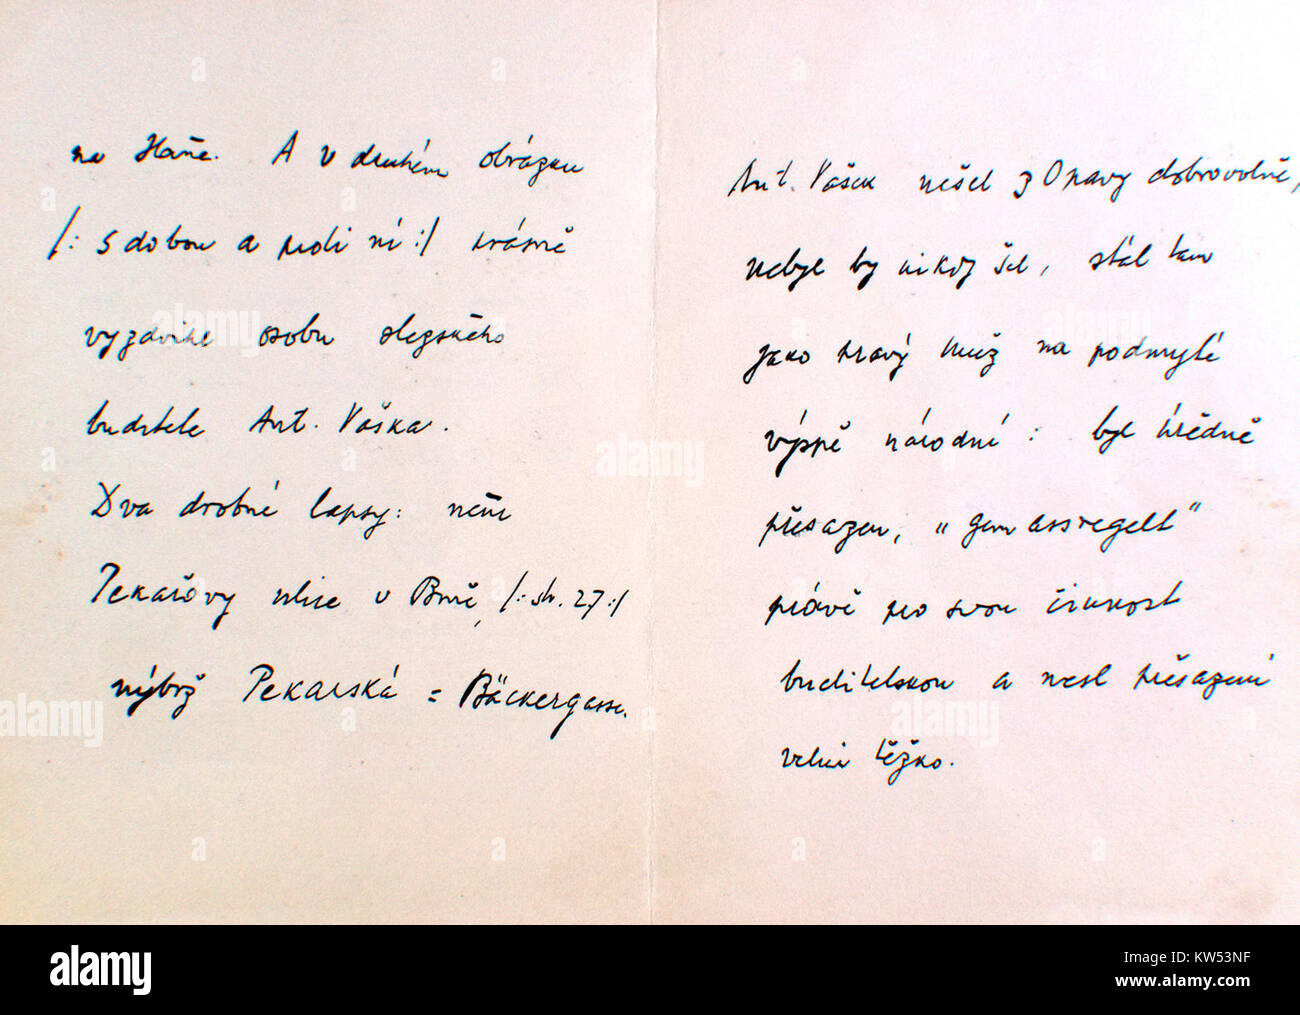 na Hané. A v druhém obrázku
/: s dobou a proti ní :/ krásně
vyzdvihl osobu slezského
buditele Ant. Vaška.
Dva drobné lapsy: není
Pekařovy ulice v Brně, /: str. 27 :/
nýbrž Pekařská = Bäckergasse.
Ant. Vašek nešel z Opavy dobrovolně,
nebyl by nikdy šel, stál tam
jako pravý muž na podmyté
výspě národní: byl úředně
přesazen, „gemassregelt“
právě pro svou činnost
buditelskou a nesl přesazení
velmi těžko.
alamy
Image ID: KW53NF
www.alamy.com